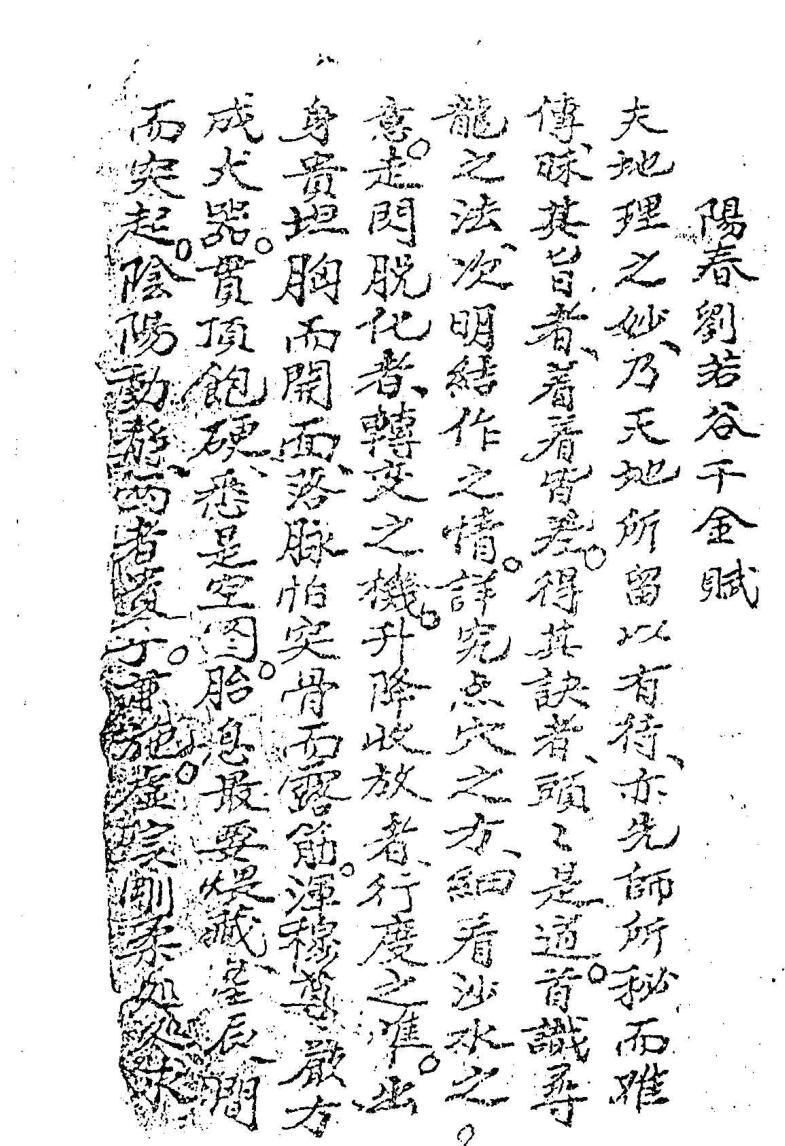 陽春劉若谷千金賦
夫地理之妙、乃天地所留以有待、亦先師所秘而難
傳、昧其旨者、着着皆差。得其訣者、頭々是道。首識尋
龍之法、次明結作之情。詳究点穴之方、細看沙水之
意。走閃脱化者、轉变之機。升降收放者、行度之準。出
身貴坦胸而開面、落脉怕突骨而露筋。渾穆尊嚴方
成大器。貫頂飽硬、悉是空图。胎息最要煨藏、星辰間
而突起。陰陽動靜、两者貴于兼施。虚实剛柔処处